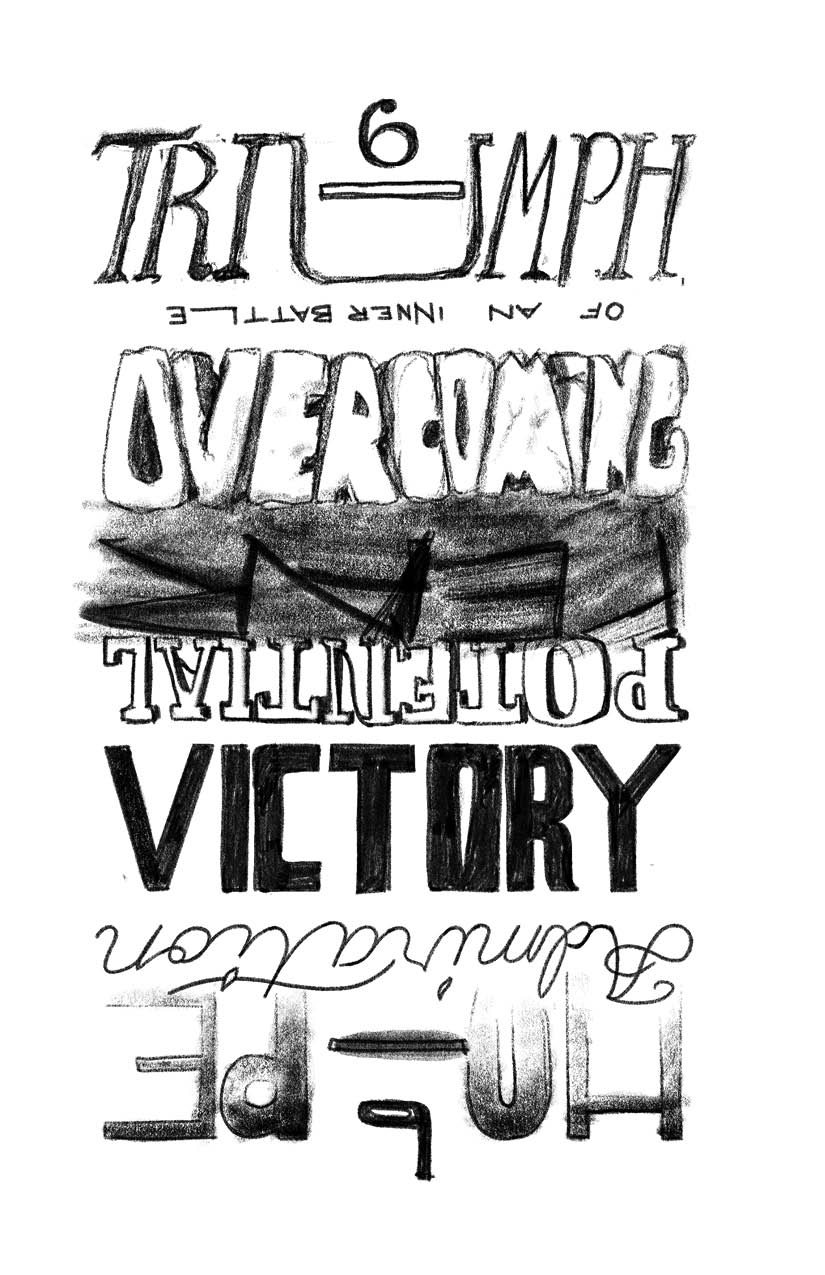 6
TRIUMPH
OF AN INNER BATTLE
OVERCOMING
POTENTIAL
VICTORY
Admiration
HOPE
6